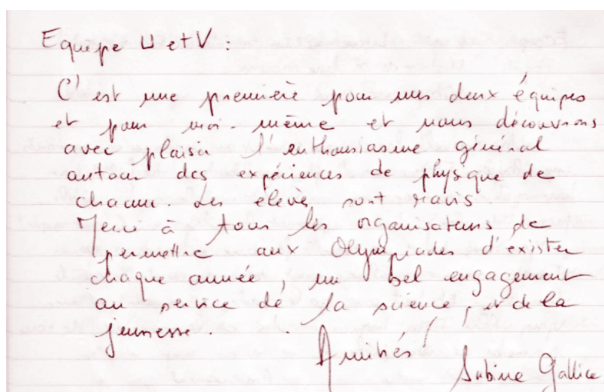 Equipe U et V :
C'est une première pour mes deux équipes
et pour moi-même et nous découvrons
avec plaisir l'enthousiasme général
autour des expériences de physique de
chacun. Les élèves sont ravis
Merci à tous les organisateurs de
permettre aux Olympiades d'exister
chaque année, un bel engagement
au service de la science, et de la
jeunesse.
Amitiés !
Sabine Gallice